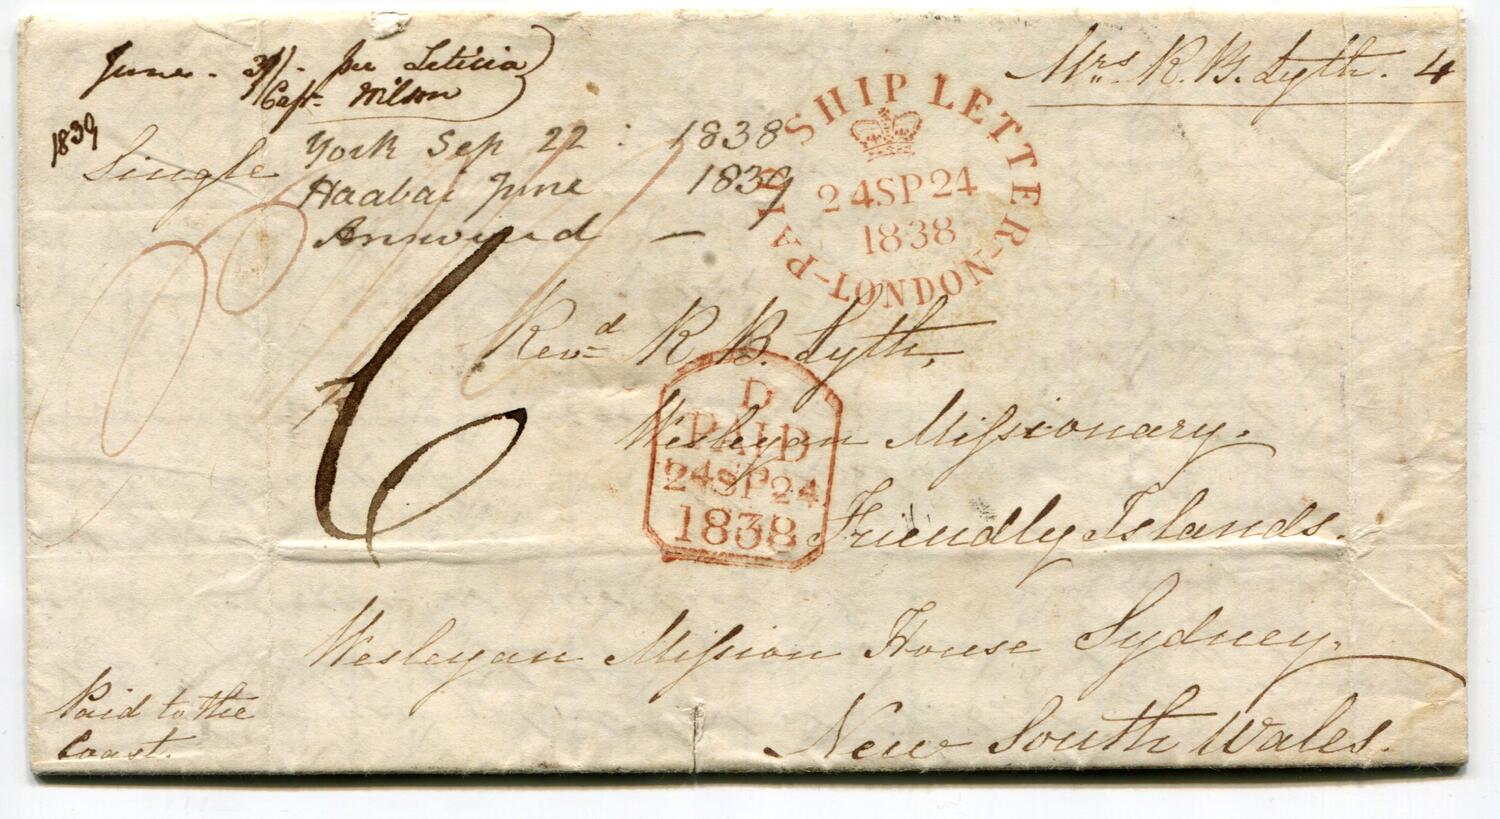 June. 3/. per Letitia
Capt. Wilson
1839
Mrs. R. B. Lyth. 4
Single
York Sep 22: 1838
Haabai June 1839
Answered —
PAID SHIP LETTER
24SP24
1838
LONDON
6
Revd R. B. Lyth,
D
PAID
24SP24
1838
Wesleyan Missionary.
Friendly Islands.
Wesleyan Mission House Sydney.
New South Wales.
Paid to the
Coast.